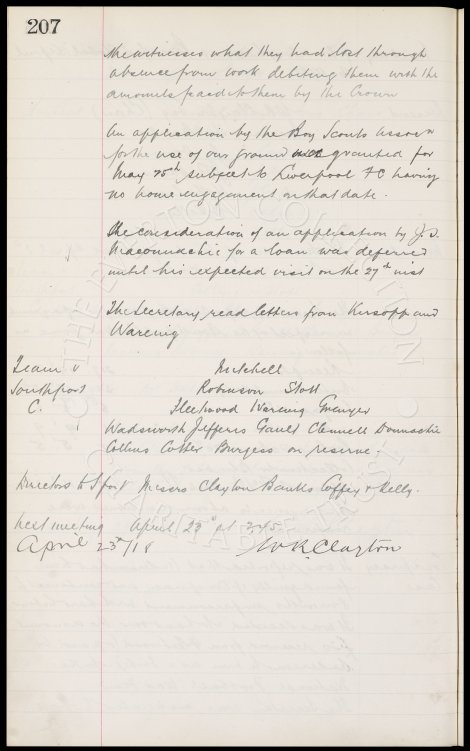 207
the witnesses what they had lost through
absence from work debiting them with the
amounts paid to them by the Crown
An application by the Boy Scouts assocn
for the use of our ground was granted for
May 25th subject to Liverpool F C having
no home engagement on that date.
The consideration of an application by J.D.
Maconnachie for a loan was deferred
until his expected visit on the 27th inst
The Secretary read letters from Kirsopp and
Wareing
Team v
Southport
C.
Mitchell
Robinson Stott
Fleetwood Wareing Grenyer
Wadsworth Jefferis Gault Clennell Donnachie
Collins Cotter Burgess on reserve.
Directors to Sport Messrs Clayton Banks Coffey & Kelly.
Next meeting April 23d at 3/45
April 23rd/18 W R Clayton
THE EVERTON COLLECTION
CHARITABLE TRUST